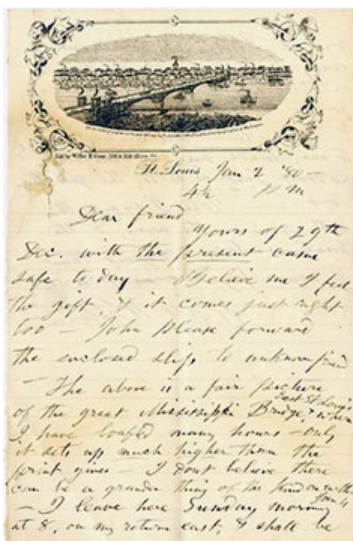 St. Louis Jan 2 '80 –
4½ P M
Dear friend
Yours of 29th
Dec. with the present came
safe to day – Believe me I feel
the gift, & it comes just right
too – John please forward
the enclosed slip to unknown friend
– The above is a fair picture
East St Louis
of the great Mississippi Bridge, & where
I have loafed many hours – only
it sets up much higher than the
print gives – I dont believe there
can be a grander thing of the kind on earth
Jan 4
– I leave here Sunday morning
at 8, on my return east, & shall be